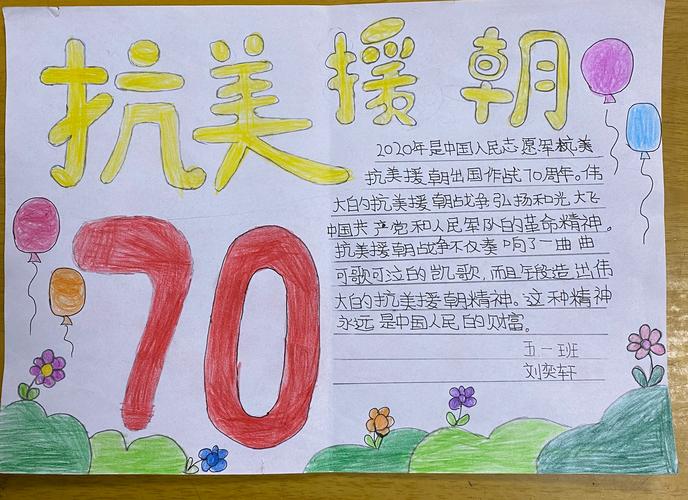 抗美援朝
70
2020年是中国人民志愿军抗美
抗美援朝出国作战70周年。伟
大的抗美援朝战争弘扬和光大飞
中国共产党和人民军队的革命精神。
抗美援朝战争不仅奏响了一曲曲
可歌可泣的凯歌,而且锻造出伟
大的抗美援朝精神。这种精神
永远是中国人民的财富。
五一班
刘奕轩